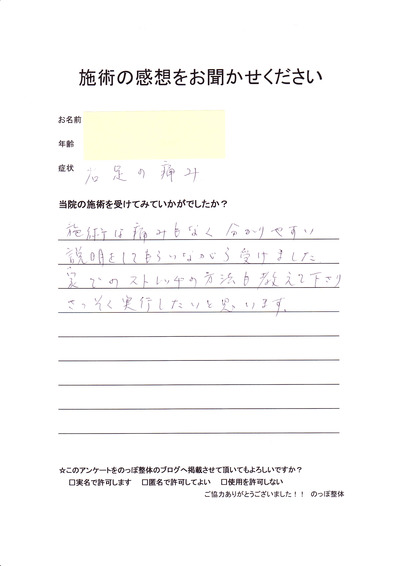 施術の感想をお聞かせください
お名前
年齢
症状 右足の痛み
当院の施術を受けてみていかがでしたか？
施術は痛みもなく 分かりやすい
説明をしてもらいながら受けました
家でのストレッチの方法も教えて下さり
さっそく実行したいと思います。
☆このアンケートをのっぽ整体のブログへ掲載させて頂いてもよろしいですか？
□実名で許可します □匿名で許可してよい □使用を許可しない
ご協力ありがとうございました！！ のっぽ整体